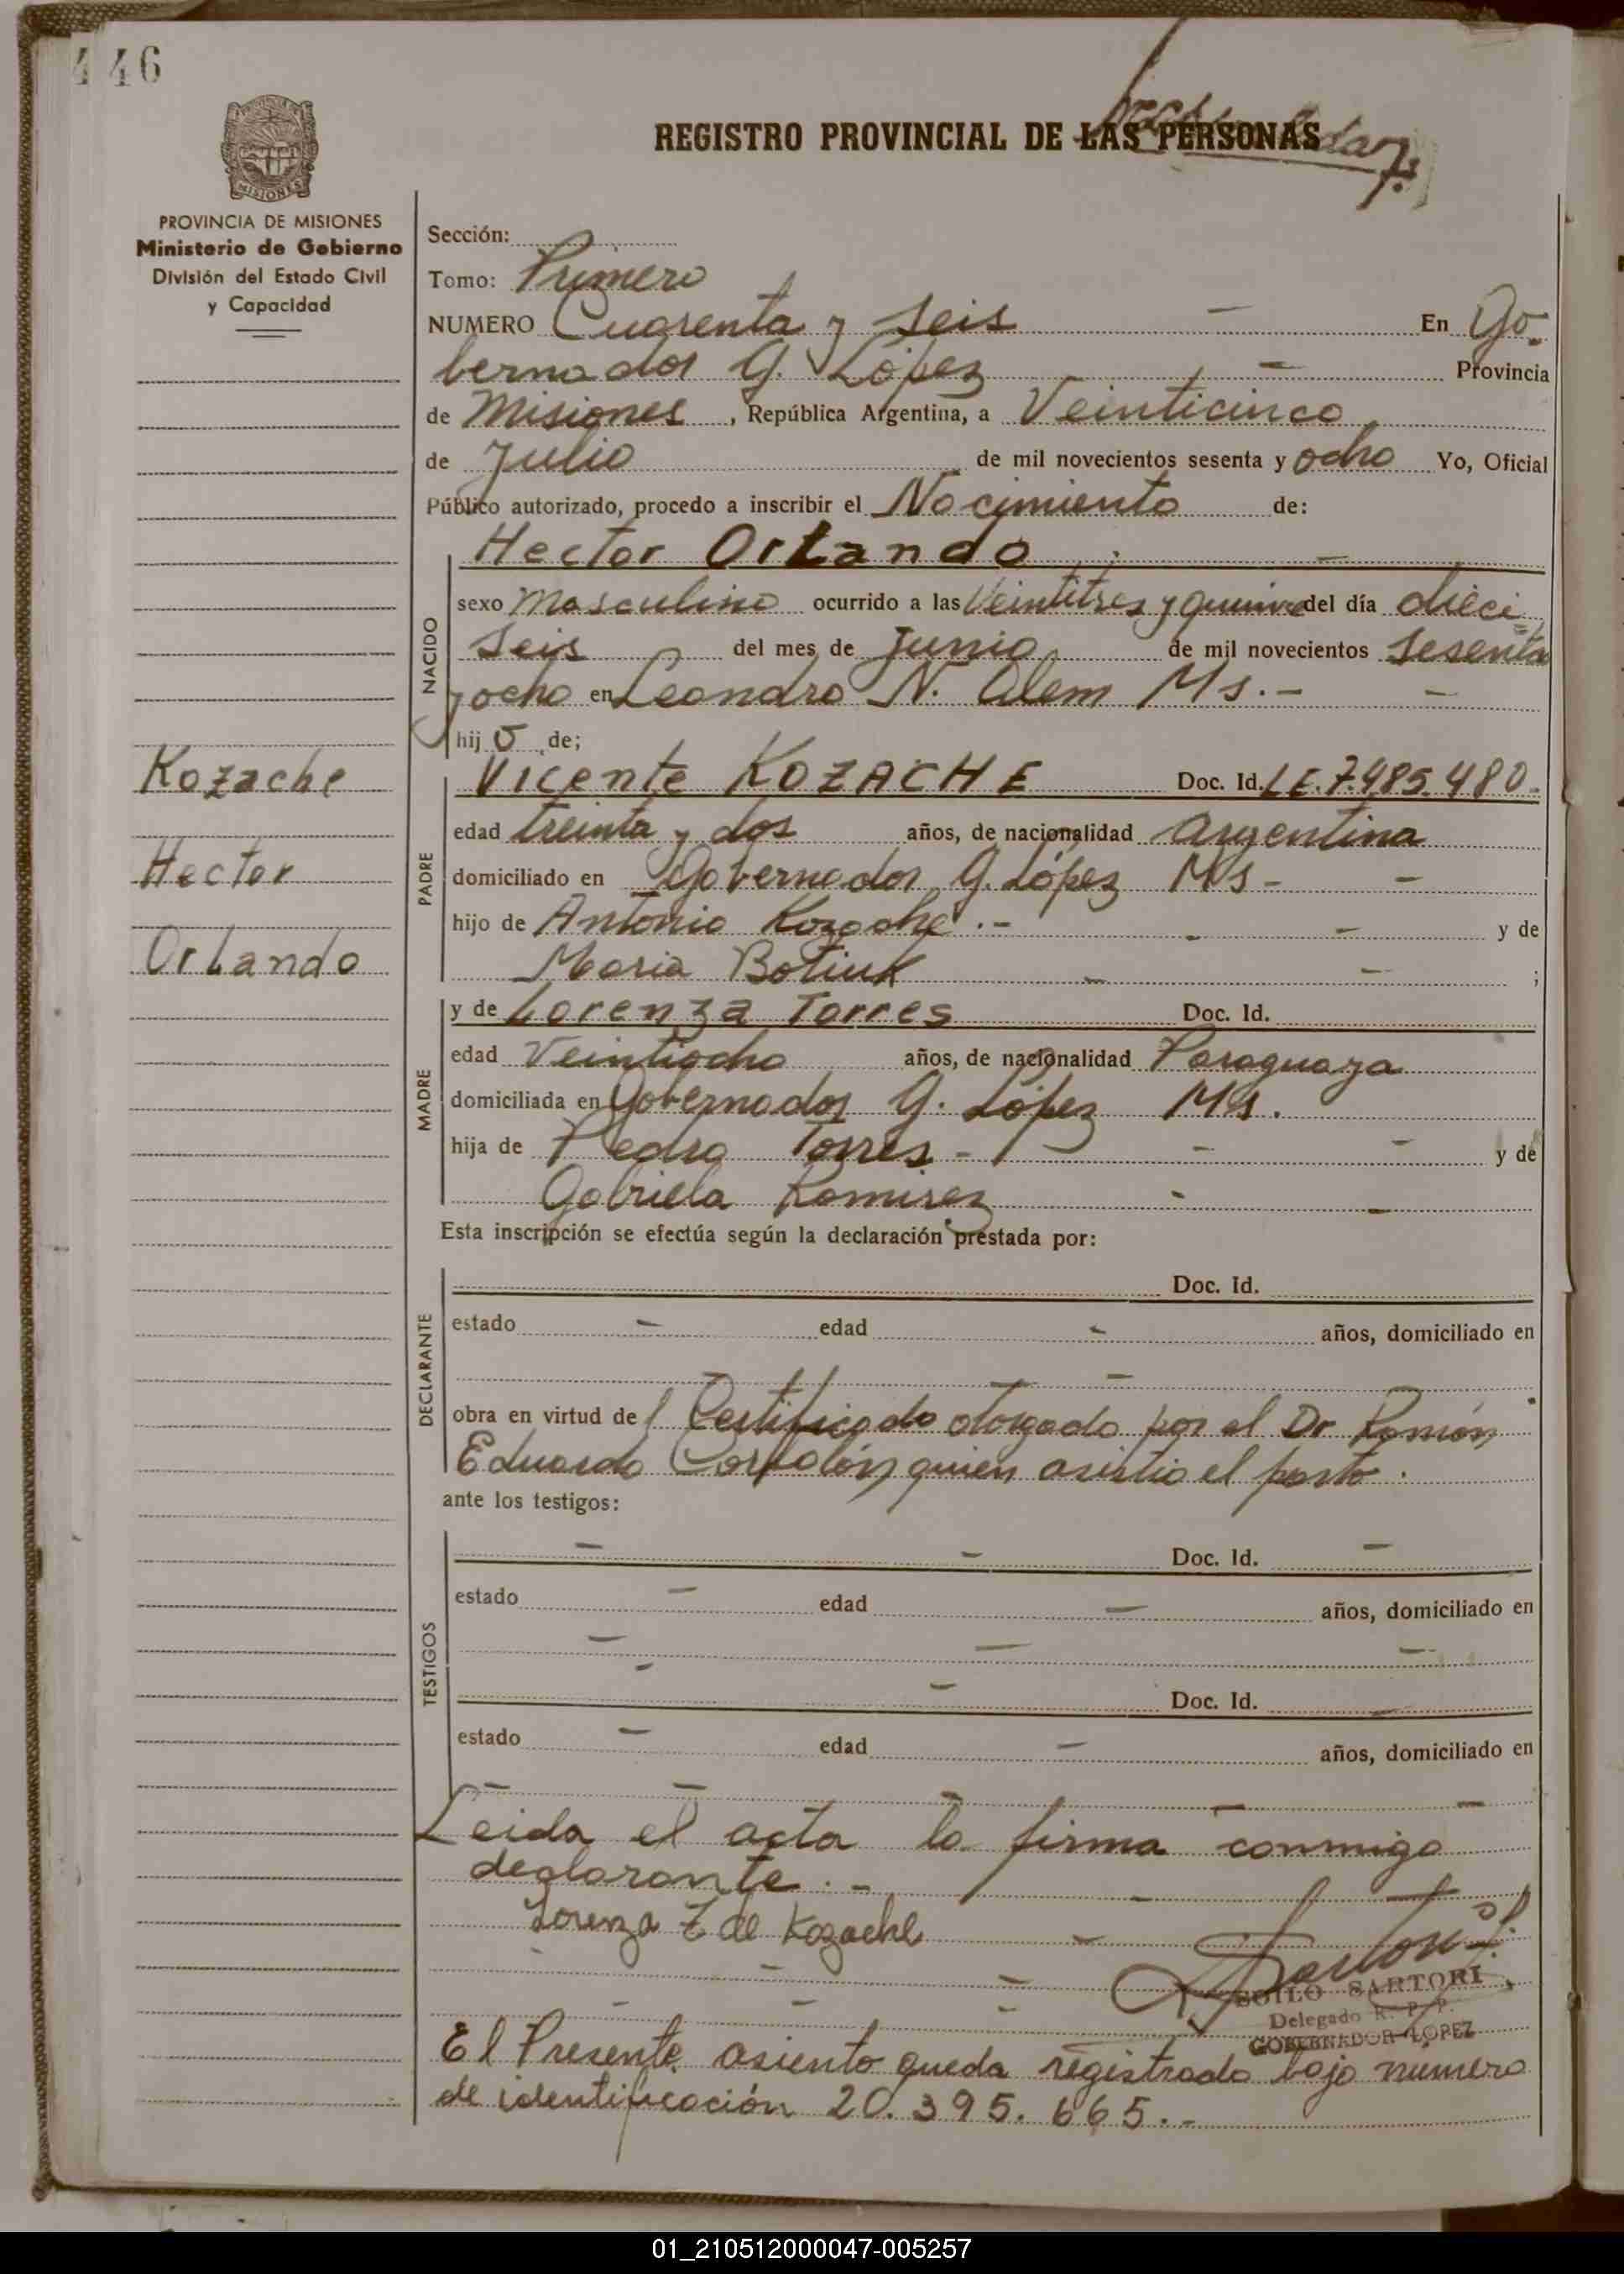 46
REGISTRO PROVINCIAL DE LAS PERSONAS
MISIONES
PROVINCIA DE MISIONES
Ministerio de Gobierno
División del Estado Civil
y Capacidad
Sección:
Tomo: Primero
NUMERO Cuarenta y seis - En Go-
bernador G. López - Provincia
de Misiones, República Argentina, a Veinticinco
de Julio de mil novecientos sesenta y ocho Yo, Oficial
Público autorizado, procedo a inscribir el Nacimiento de:
Hector Orlando -
NACIDO
sexo Masculino ocurrido a las Veintitres y quince del día dieci
seis del mes de Junio de mil novecientos sesenta
y ocho en Leandro N. Alem Ms.- -
hijo de;
Kozache
Hector
Orlando
PADRE
Vicente KOZACHE Doc. Id. L.E. 7.485.480-
edad treinta y dos años, de nacionalidad Argentina
domiciliado en Gobernador G. López Ms - -
hijo de Antonio Kozache.- - - y de
Maria Botiuk - - ;
MADRE
y de Lorenza Torres Doc. Id.
edad Veintiocho años, de nacionalidad Paraguaya
domiciliada en Gobernador G. López Ms.
hija de Pedro Torres - - - y de
Gabriela Ramirez - -
Esta inscripción se efectúa según la declaración prestada por:
DECLARANTE
Doc. Id.
estado - edad - años, domiciliado en
- - -
obra en virtud del Certificado otorgado por el Dr Ramón
Eduardo quien asistio el parto.
ante los testigos:
TESTIGOS
- - Doc. Id. -
estado - edad - años, domiciliado en
- - -
- - Doc. Id. -
estado - edad - años, domiciliado en
- - - - -
Leida el acta la firma conmigo
declarante.- -
Lorenza T de Kozache -
SOILO SARTORI
Delegado R. P. P.
GOBERNADOR LOPEZ
El Presente asiento queda registrado bajo número
de identificación 20.395.665.-
01_210512000047-005257